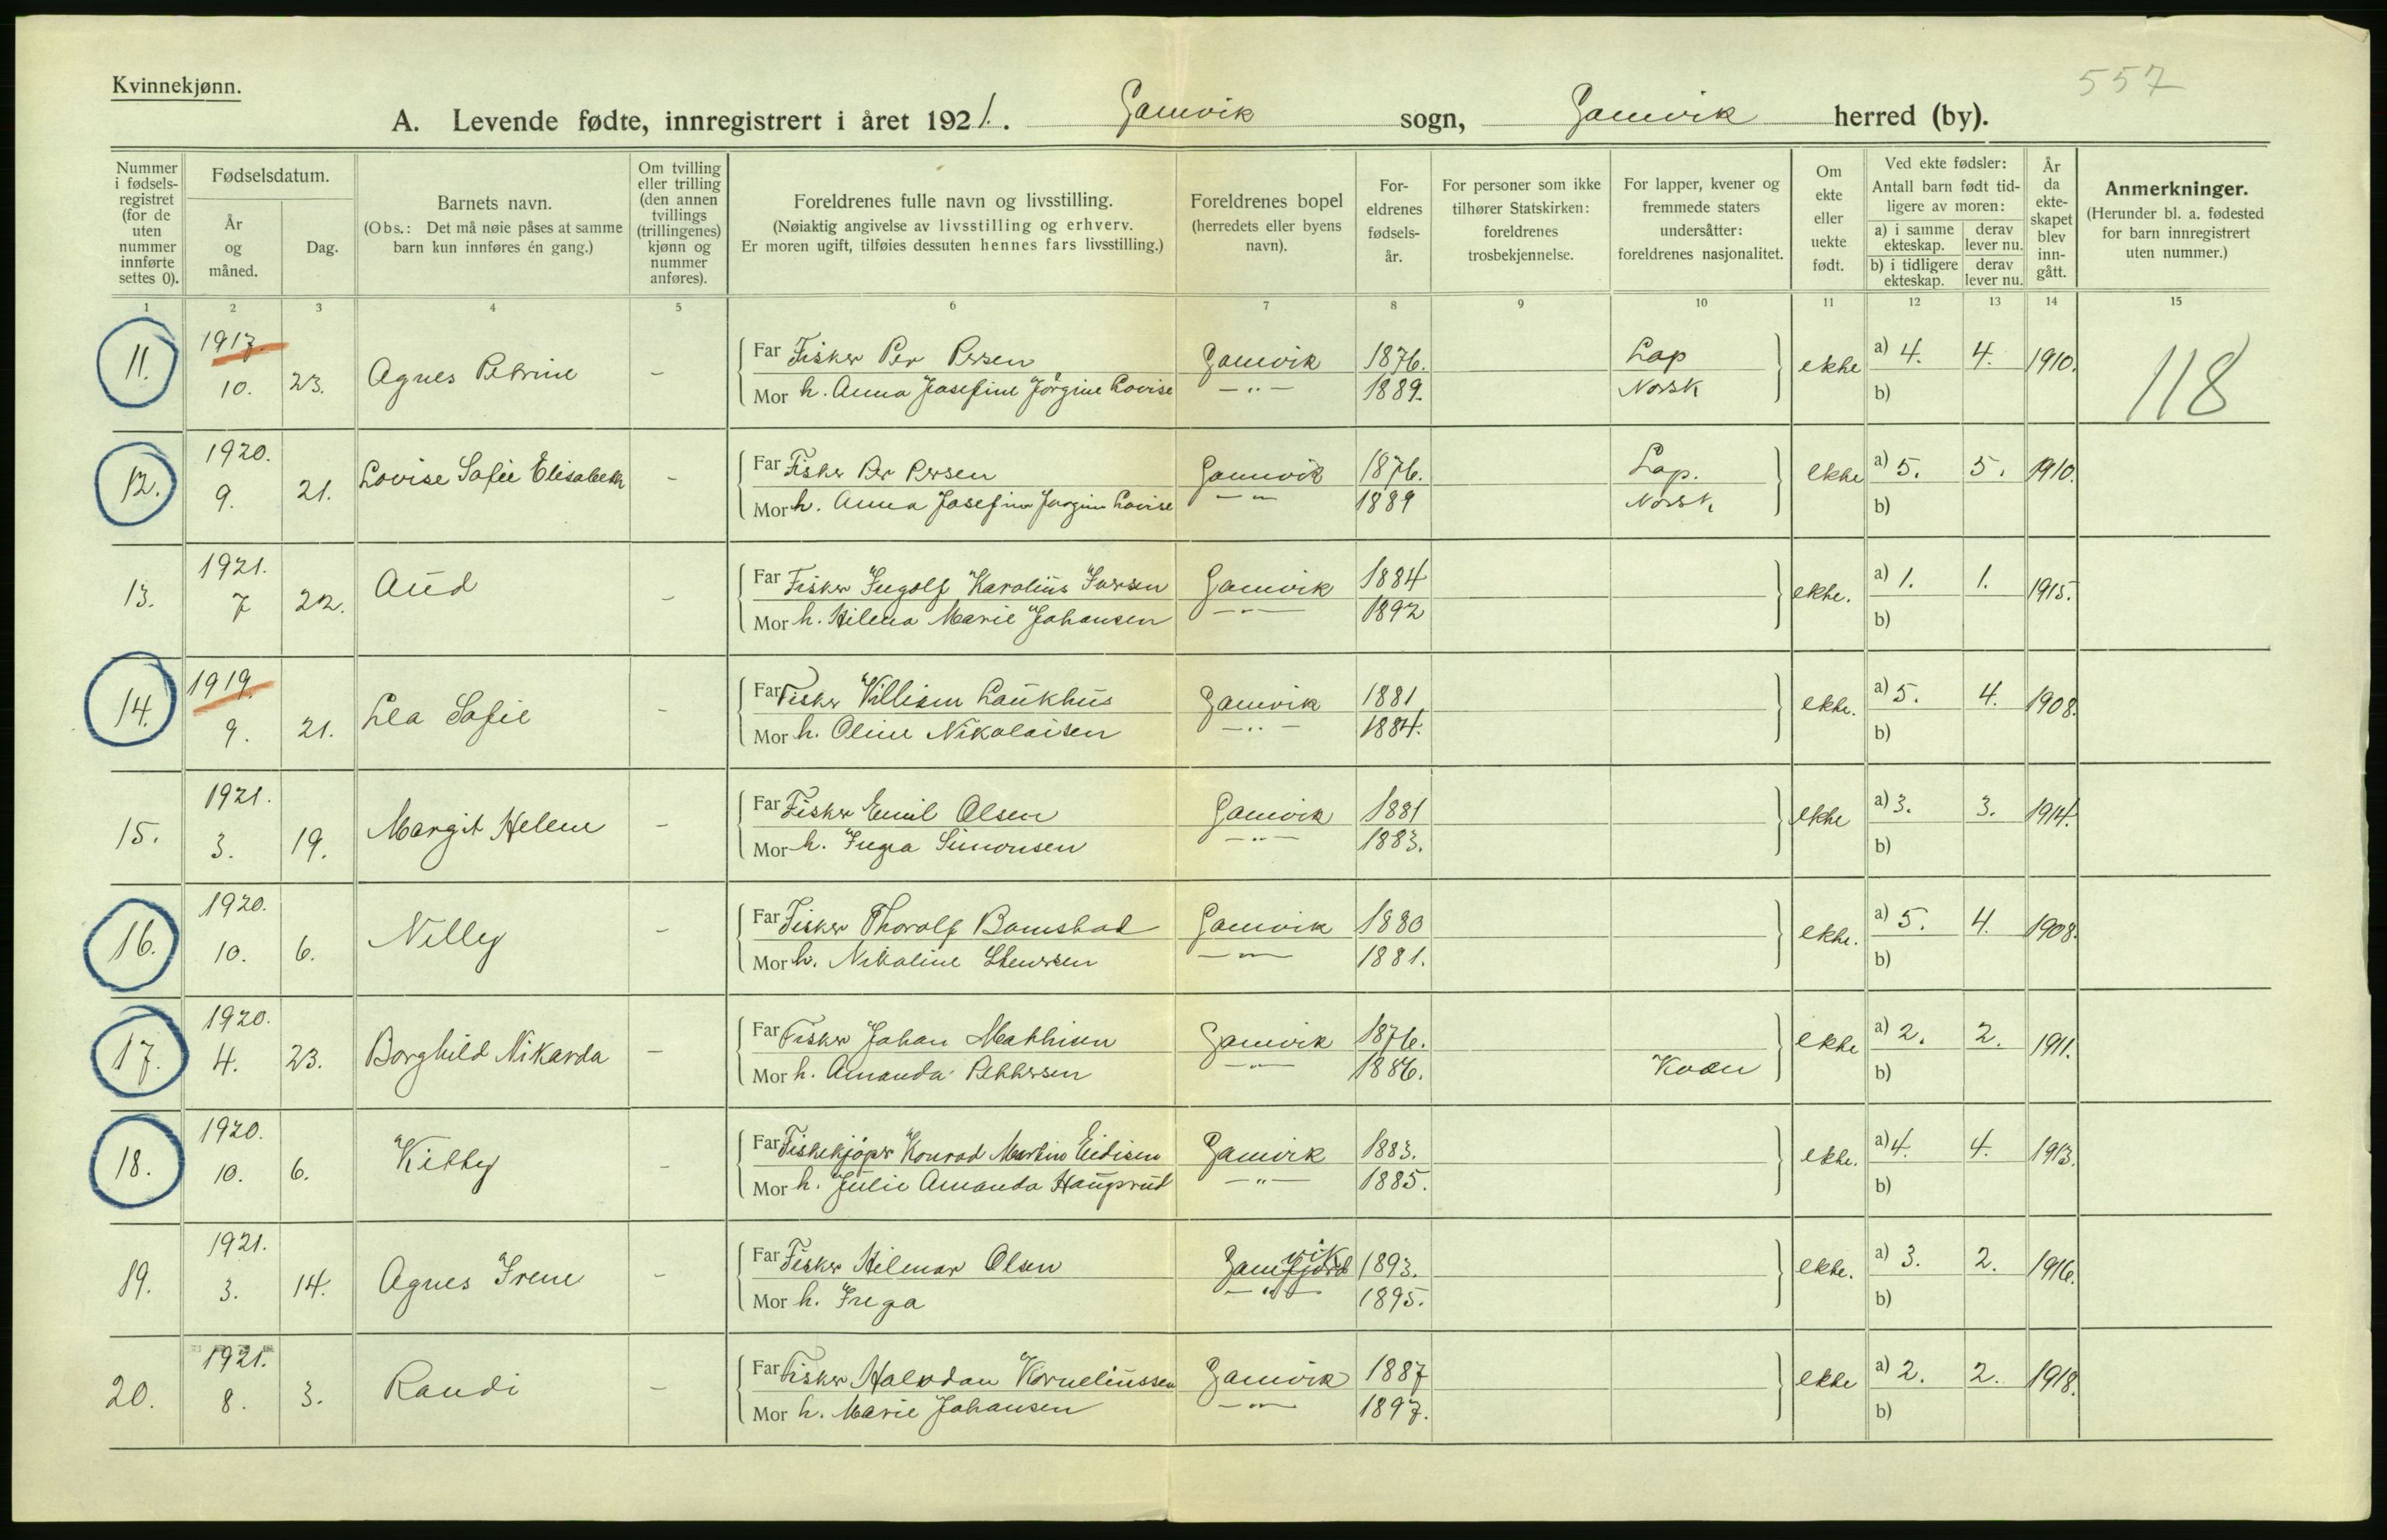 557
Kvinnekjønn.
A. Levende fødte, innregistrert i året 1921. Gamvik sogn, Gamvik herred (by).
Nummer i fødselsregistret (for de uten nummer innførte settes 0).
Fødselsdatum.
År og måned.
Dag.
Barnets navn.
(Obs.: Det må nøie påses at samme barn kun innføres én gang.)
Om tvilling eller trilling (den annen tvillings (trillingenes) kjønn og nummer anføres).
Foreldrenes fulle navn og livsstilling.
(Nøiaktig angivelse av livsstilling og erhverv.
Er moren ugift, tilføies dessuten hennes fars livsstilling.)
Foreldrenes bopel
(herredets eller byens navn).
Foreldrenes fødselsår.
For personer som ikke tilhører Statskirken: foreldrenes trosbekjennelse.
For lapper, kvener og fremmede staters undersåtter: foreldrenes nasjonalitet.
Om ekte eller uekte født.
Ved ekte fødsler:
Antall barn født tidligere av moren:
a) i samme ekteskap. derav lever nu.
b) i tidligere ekteskap. derav lever nu.
År da ekteskapet blev inngått.
Anmerkninger.
(Herunder bl. a. fødested for barn innregistrert uten nummer.)
1 2 3 4 5 6 7 8 9 10 11 12 13 14 15
11. 1917. 10. 23. Agnes Petrine – Far Fisker Per Persen Gamvik 1876. Lap ekte a) 4. 4. 1910. 118
Mor h. Anna Josefine Jörgine Lovise –"– 1889. Norsk b)
12. 1920. 9. 21. Lovise Sofie Elisabeth – Far Fisker Per Persen Gamvik 1876. Lap. ekte a) 5. 5. 1910.
Mor h. Anna Josefine Jorgine Lovise –"– 1889 Norsk b)
13. 1921. 7 22. Aud – Far Fisker Ingolf Karolius Iversen Gamvik 1884 ekte. a) 1. 1. 1915.
Mor h. Hilena Marie Johansen –"– 1892 b)
14. 1919. 9. 21. Lea Sofie – Far Fisker Villiam Laukhus Gamvik 1881 ekte. a) 5. 4. 1908.
Mor h. Oline Nikolaisen –"– 1884. b)
15. 1921. 3. 19. Margit Helene – Far Fisker Emil Olsen Gamvik 1881 ekte a) 3. 3. 1914.
Mor h. Inga Simonsen –"– 1883. b)
16. 1920. 10. 6. Nelly – Far Fisker Thorolf Bamstad Gamvik 1880 ekte. a) 5. 4. 1908.
Mor h. Nikoline –"– 1881. b)
17. 1920. 4. 23. Borghild Nikarda – Far Fisker Johan Mathisen Gamvik 1876. ekte a) 2. 2. 1911.
Mor h. Amanda Pettersen –"– 1886. Kvæn b)
18. 1920. 10. 6. Kitty – Far Fiskekjöper Konrad Martin Eidisen Gamvik 1883. ekte. a) 4. 4. 1913.
Mor h. Julie Amanda Haugsrud –"– 1885. b)
19. 1921. 3. 14. Agnes Irene – Far Fisker Hilmar Olsen Gamfjord vik 1893. ekte. a) 3. 2. 1916.
Mor h. Inga –"– 1895. b)
20. 1921. 8. 3. Randi – Far Fisker Halvdan Korneliussen Gamvik 1887 ekte a) 2. 2. 1918.
Mor h. Marie Johansen –"– 1897. b)